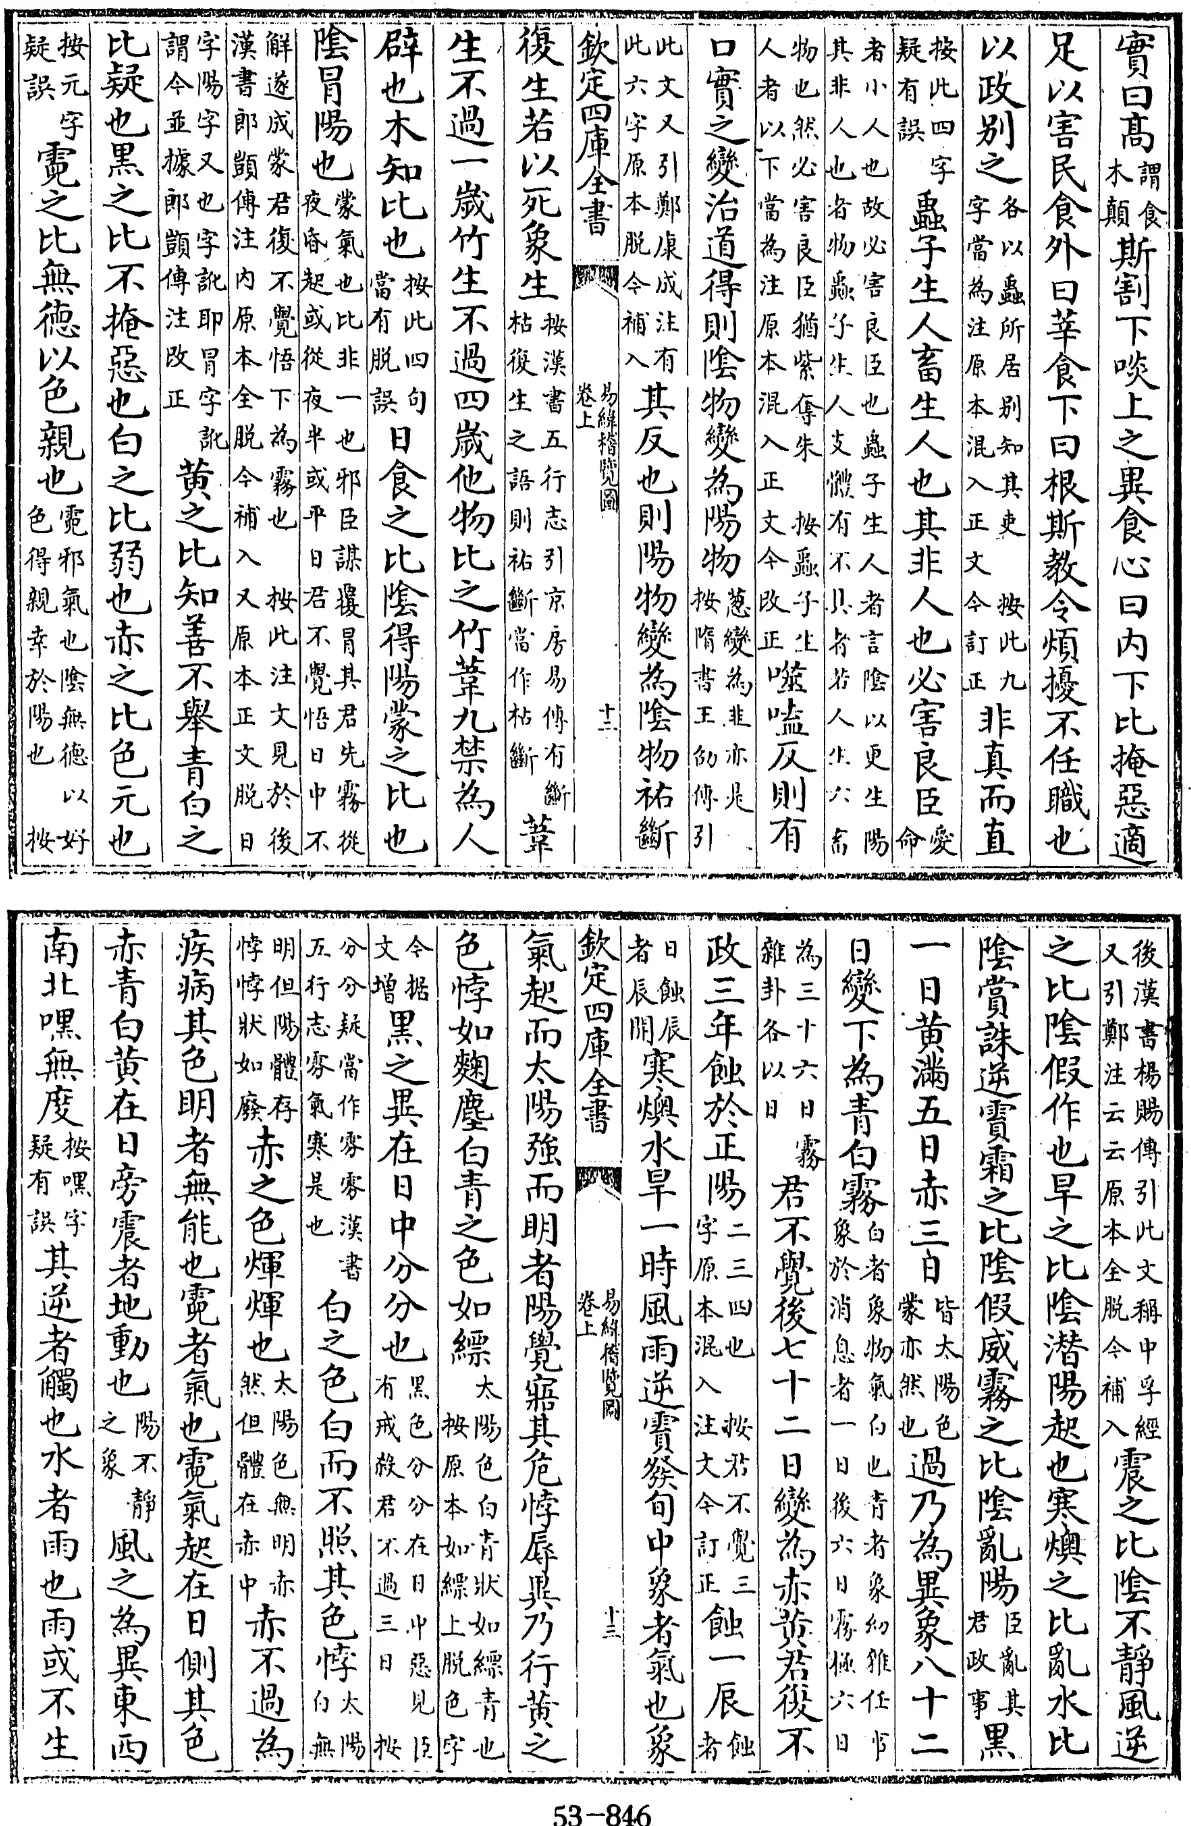 實曰髙謂食木顛斯割下啖上之異食心曰内下比掩惡適
足以害民食外曰莘食下曰根斯教令煩擾不任職也
以政别之各以蟲所居别知其吏 按此九字當為注原本混入正文今訂正非真而直
按此四字疑有誤蟲子生人畜生人也其非人也必害良臣愛命
者小人也故必害良臣也蟲子生人者言陰以更生陽其非人也者物蟲子生人支體有不具者若人生六畜
物也然必害良臣猶紫奪朱 按蟲子生人者以下當為注原本混入正文今改正噬嗑反則有
口實之變治道得則隂物變為陽物葱變為韭亦是 按隋書王劭傳引
此文又引鄭康成注有此六字原本脱今補入其反也則陽物變為隂物祐斷
欽定四庫全書 易緯稽覽圖 卷上 十二
復生若以死象生按漢書五行志引京房易傳有斷枯復生之語則祐斷當作枯斷葦
生不過一歲竹生不過四歲他物比之竹葦九禁為人
辟也木知比也按此四句當有脱誤日食之比隂得陽蒙之比也
隂冒陽也蒙氣也比非一也邪臣謀覆冒其君先霧從夜昏起或從夜半或平日君不覺悟日中不
解遂成蒙君復不覺悟下為霧也 按此注文見於後漢書郎顗傳注内原本全脱今補入又原本正文脱日
字陽字又也字訛耶冒字訛謂今並據郎顗傳注改正黄之比知善不舉青白之
比疑也黒之比不掩惡也白之比弱也赤之比色元也
按元字疑誤霓之比無德以色親也霓邪氣也隂無德以好色得親幸於陽也 按
後漢書楊賜傳引此文稱中孚經又引鄭注云云原本全脱今補入震之比隂不靜風逆
之比隂假作也旱之比隂潛陽起也寒燠之比亂水比
隂賞誅逆霣霜之比隂假威霧之比隂亂陽臣亂其君政事黒
一日黄滿五日赤三白皆太陽色蒙亦然也過乃為異象八十二
日變下為青白霧白者象物氣白也青者象幼雜任事象於消息者一日後六日霧極六日
為三十六日霧雜卦各以日君不覺後七十二日變為赤黄君復不
政三年蝕於正陽二三四也 按君不覺三字原本混入注文今訂正蝕一辰蝕者
日蝕辰者辰閒寒燠水旱一時風雨逆霣發旬中象者氣也象
欽定四庫全書 易緯稽覽圖 卷上 十三
氣起而太陽強而明者陽覺寤其危悖辱異乃行黄之
色悖如麴塵白青之色如縹太陽色白青狀如縹青也 按原本如縹上脱色字
今据文增黒之異在日中分分也黒色分分在日中惡見臣有戒救君不過三日 按
分分疑當作雰雰漢書五行志雰氣寒是也白之色白而不照其色悖太陽白無
明但陽體存悖悖狀如廢赤之色煇煇也太陽色無明赤然但體在赤中赤不過為
疾病其色明者無能也霓者氣也霓氣起在日側其色
赤青白黄在日旁震者地動也陽不靜之象風之為異東西
南北嘿無度按嘿字疑有誤其逆者觸也水者雨也雨或不生
53-846